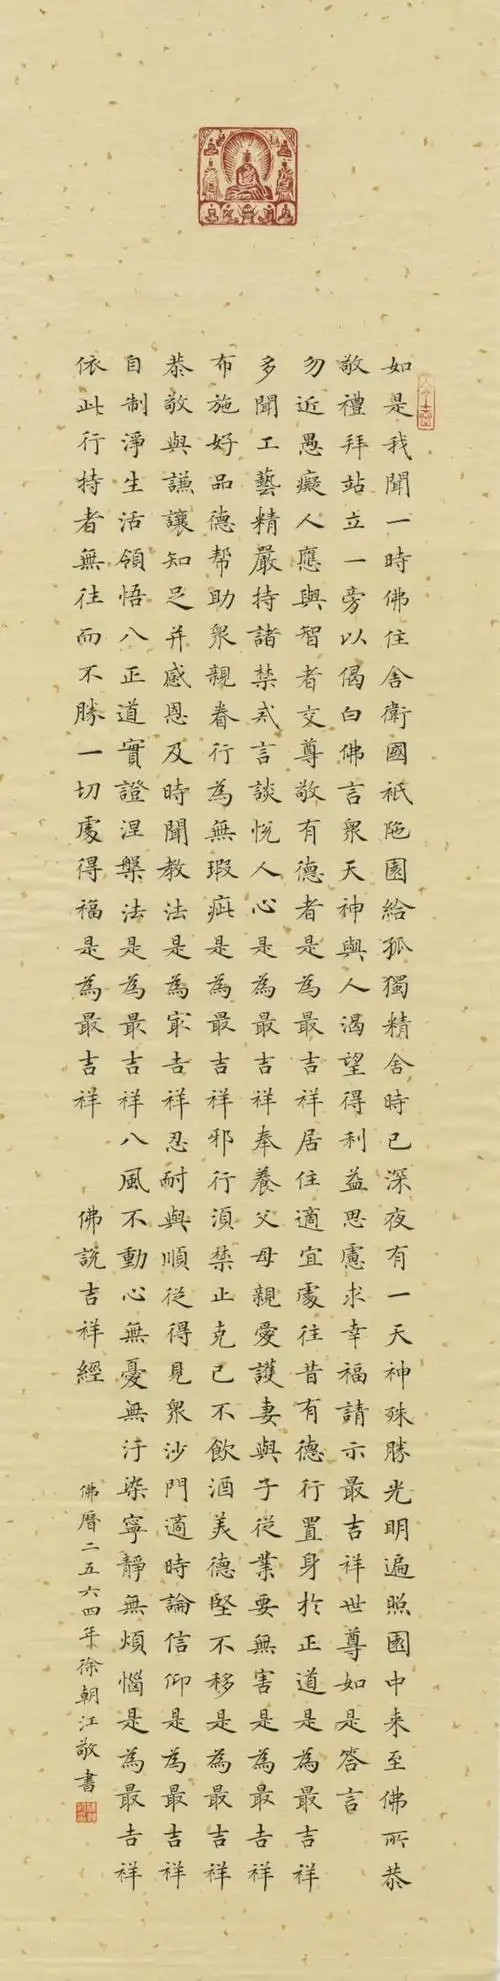 如是我聞一時佛住舍衛國祇陁園給孤獨精舍時已深夜有一天神殊勝光明遍照園中来至佛所恭
敬禮拜站立一旁以偈白佛言衆天神與人渴望得利益思慮求幸福請示最吉祥世尊如是答言
勿近愚癡人應與智者交尊敬有德者是為最吉祥居住適宜處往昔有德行置身於正道是為最吉祥
多聞工藝精嚴持諸禁戒言談悦人心是為最吉祥奉養父母親愛護妻與子従業要無害是為最吉祥
布施好品德帮助衆親眷行為無瑕疵是為最吉祥邪行須禁止克已不飲酒美德堅不移是為最吉祥
恭敬與謙讓知足并感恩及時聞教法是為冣吉祥忍耐與順従得見衆沙門適時論信仰是為最吉祥
自制淨生活領悟八正道實證涅槃法是為最吉祥八風不動心無憂無汙染寧靜無煩惱是為最吉祥
依此行持者無往而不勝一切處得福是為最吉祥 佛說吉祥經
佛曆二五六四年徐朝江敬書